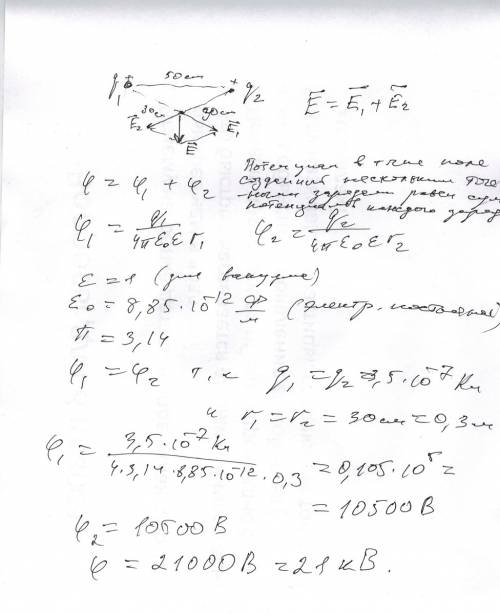 50 см
q₁ + + q₂
30 см 30 см
E⃗₂ E⃗₁
E⃗
E⃗ = E⃗₁ + E⃗₂
Потенциал в точке поля
созданной несколькими точе
ными зарядами равен сум
потенциалов каждого заряд
φ = φ₁ + φ₂
φ₁ = q₁/4πε₀εr₁ φ₂ = q₂/4πε₀εr₂
ε = 1 (для вакуума)
ε₀ = 8,85·10⁻¹² Ф/м (электр. постоянная)
π = 3,14
φ₁ = φ₂ т.к q₁ = q₂ = 3,5·10⁻⁷ Кл
и r₁ = r₂ = 30 см = 0,3 м
φ₁ = 3,5·10⁻⁷ Кл/4·3,14·8,85·10⁻¹²·0,3 = 0,105·10⁵ =
= 10500 В
φ₂ = 10500 В
φ = 21000 В = 21 кВ.